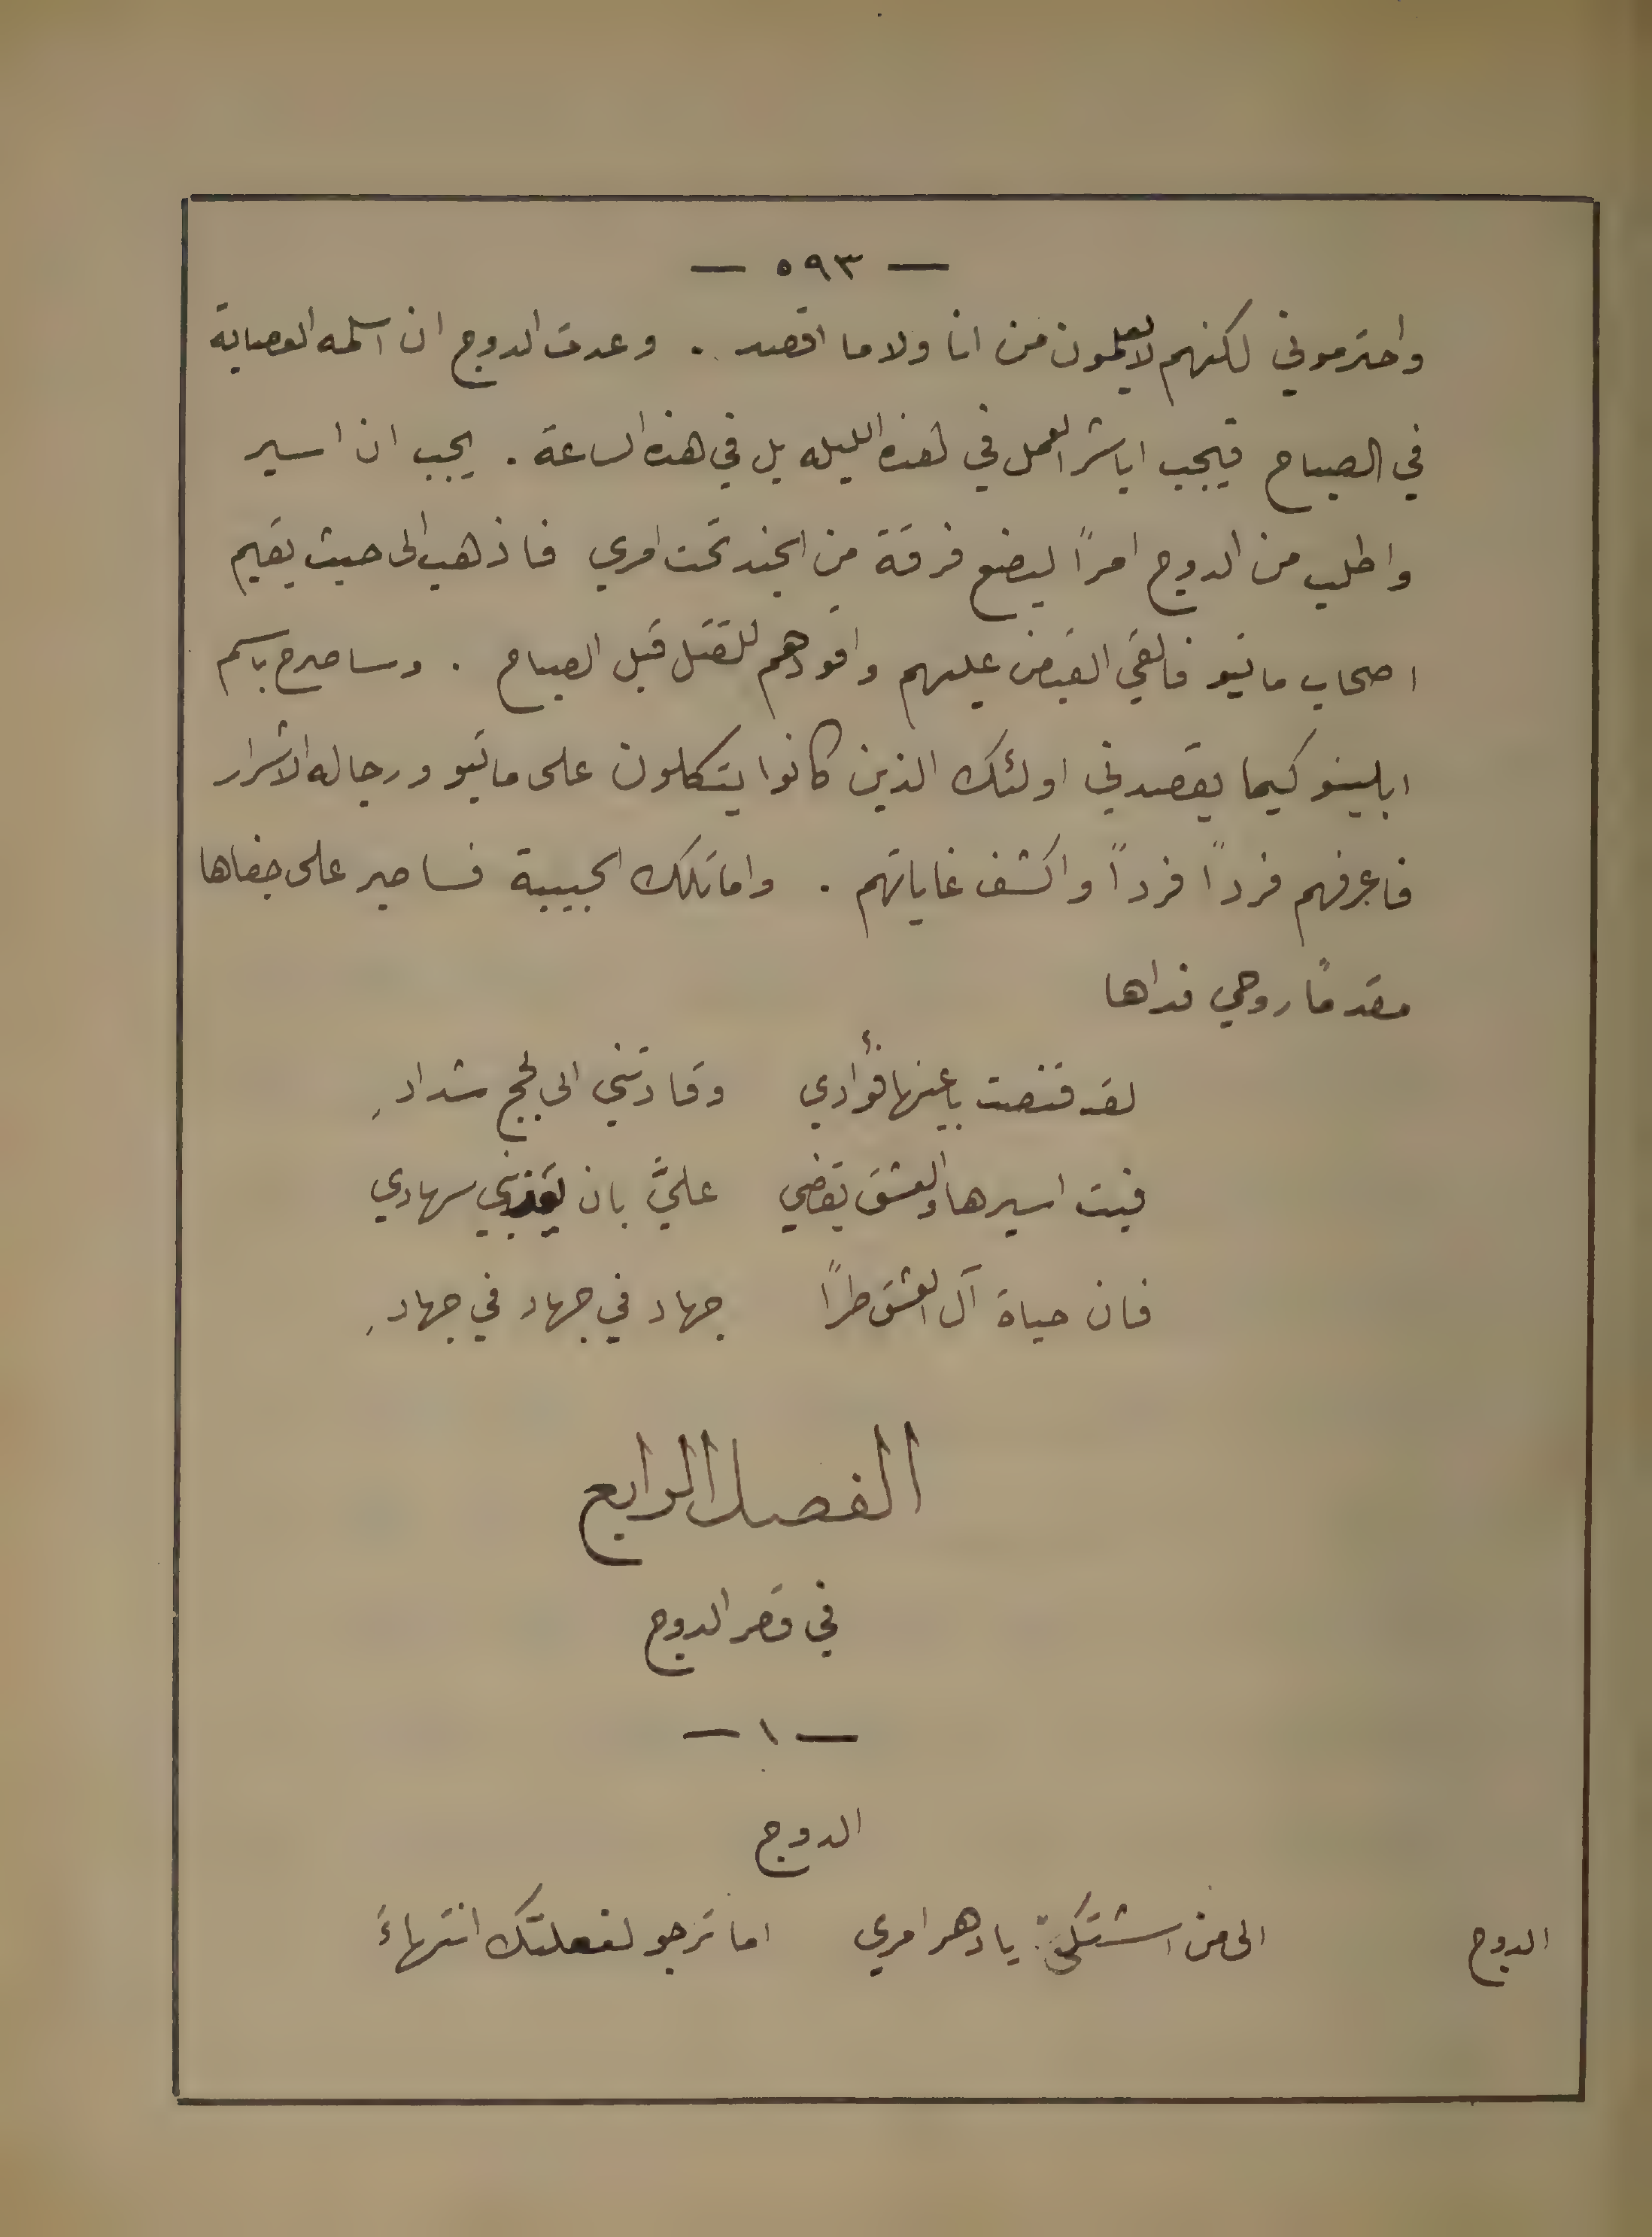 — ٥٩٣ —
واحترموني لكنهم لا يعلمون من انا ولا ما اقصد . وعدت الدوج ان اسلمه العصابة
في الصباح فيجب اباشر العمل في هذه الليله بل في هذه الساعة . يجب ان اسير
واطلب من الدوج امرًا ليضع فرقة من الجند تحت امري فاذهب الى حيث يقيم
اصحاب ماتيو فالقي القبض عليهم واقودهم للقتل قبل الصباح . وساصرح باسم
ابلينو كيما يقصدني اولئك الذين كانوا يتكلون على ماتيو ورجاله الاشرار
فاعرفهم فردًا فردًا واكشف غاياتهم . واما تلك الحبيبة فساصبر على جفاها
مقدمًا روحي فداها
لقد قنصت باعينها فؤادي وقادتني الى لجج شدادِ
فبت اسيرها والعشق يقضي عليَّ بان يعذبني سهادي
فان حياة آل العشق طرًا جهاد في جهاد في جهادِ
الفصل الرابع
في قصر الدوج
— ١ —
الدوج
الدوج الى من اشتكي يا دهر امري اما ترجو لفعلتك انتهاءَ